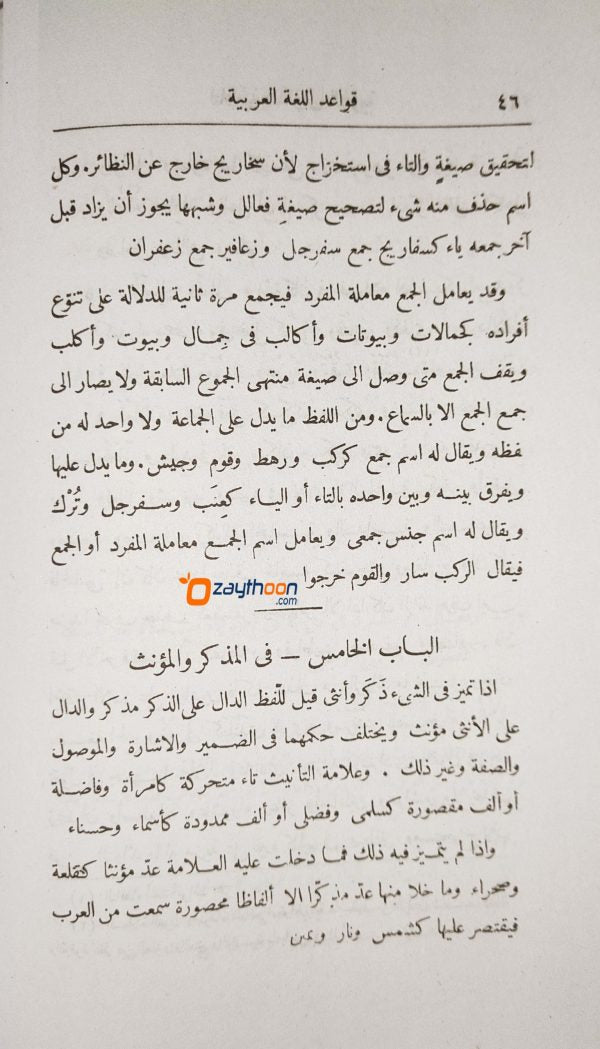 ٤٦ قواعد اللغة العربية
لتحقيق صيغةٍ والتاء فى استخزاج لأن سخاريج خارج عن النظائر. وكل
اسم حذف منه شىء لتصحيح صيغةِ فعالل وشبهها يجوز أن يزاد قبل
آخر جمعه ياء كسفاريج جمع سفرجل وزعافير جمع زعفران
وقد يعامل الجمع معاملة المفرد فيجمع مرة ثانية للدلالة على تنوّع
أفراده كجمالات وبيوتات وأكالب فى جِمال وبيوت وأكلب
ويقف الجمع متى وصل الى صيغة منتهى الجموع السابقة ولا يصار الى
جمع الجمع الا بالسماع. ومن اللفظ ما يدل على الجماعة ولا واحد له من
لفظه ويقال له اسم جمع كركب ورهط وقوم وجيش. وما يدل عليها
ويفرق بينه وبين واحده بالتاء أو الياء كعِنَب وسفرجل وتُرْك
ويقال له اسم جنس جمعى ويعامل اسم الجمع معاملة المفرد أو الجمع
فيقال الركب سار والقوم خرجوا
zaythoon.com
الباب الخامس – فى المذكر والمؤنث
اذا تميز فى الشىء ذَكَر وأنثى قيل للّفظ الدال على الذكر مذكر والدال
على الأنثى مؤنث ويختلف حكمهما فى الضمير والاشارة والموصول
والصفة وغير ذلك . وعلامة التأنيث تاء متحركة كامرأة وفاضلة
أو ألف مقصورة كسلمى وفضلى أو ألف ممدودة كأسماء وحسناء
واذا لم يتميز فيه ذلك فما دخلت عليه العلامة عدّ مؤنثا كقلعة
وصحراء وما خلا منها عدّ مذكرا الا ألفاظا محصورة سمعت من العرب
فيقتصر عليها كشمس ونار ويمن